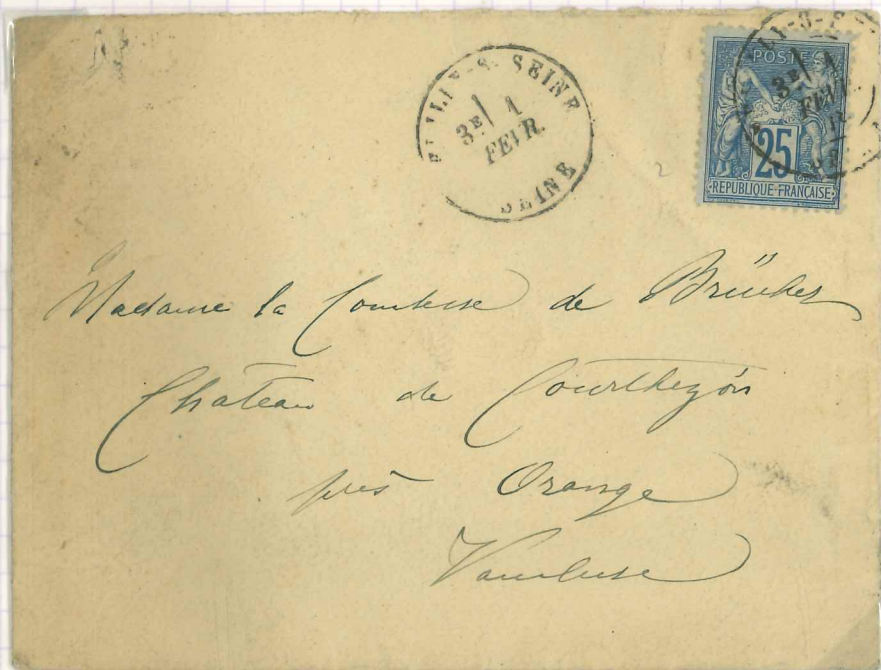 SEINE
3E 1
FEVR.
SEINE
POSTE
3E 1
25
REPUBLIQUE FRANÇAISE
2
Madame la Comtesse de
Château de Courthezon
près Orange
Vaucluse